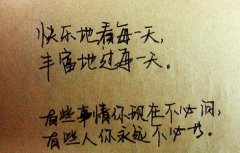 快乐地看每一天，
丰富地过每一天。
有些事情你现在不必问，
有些人你永远不必